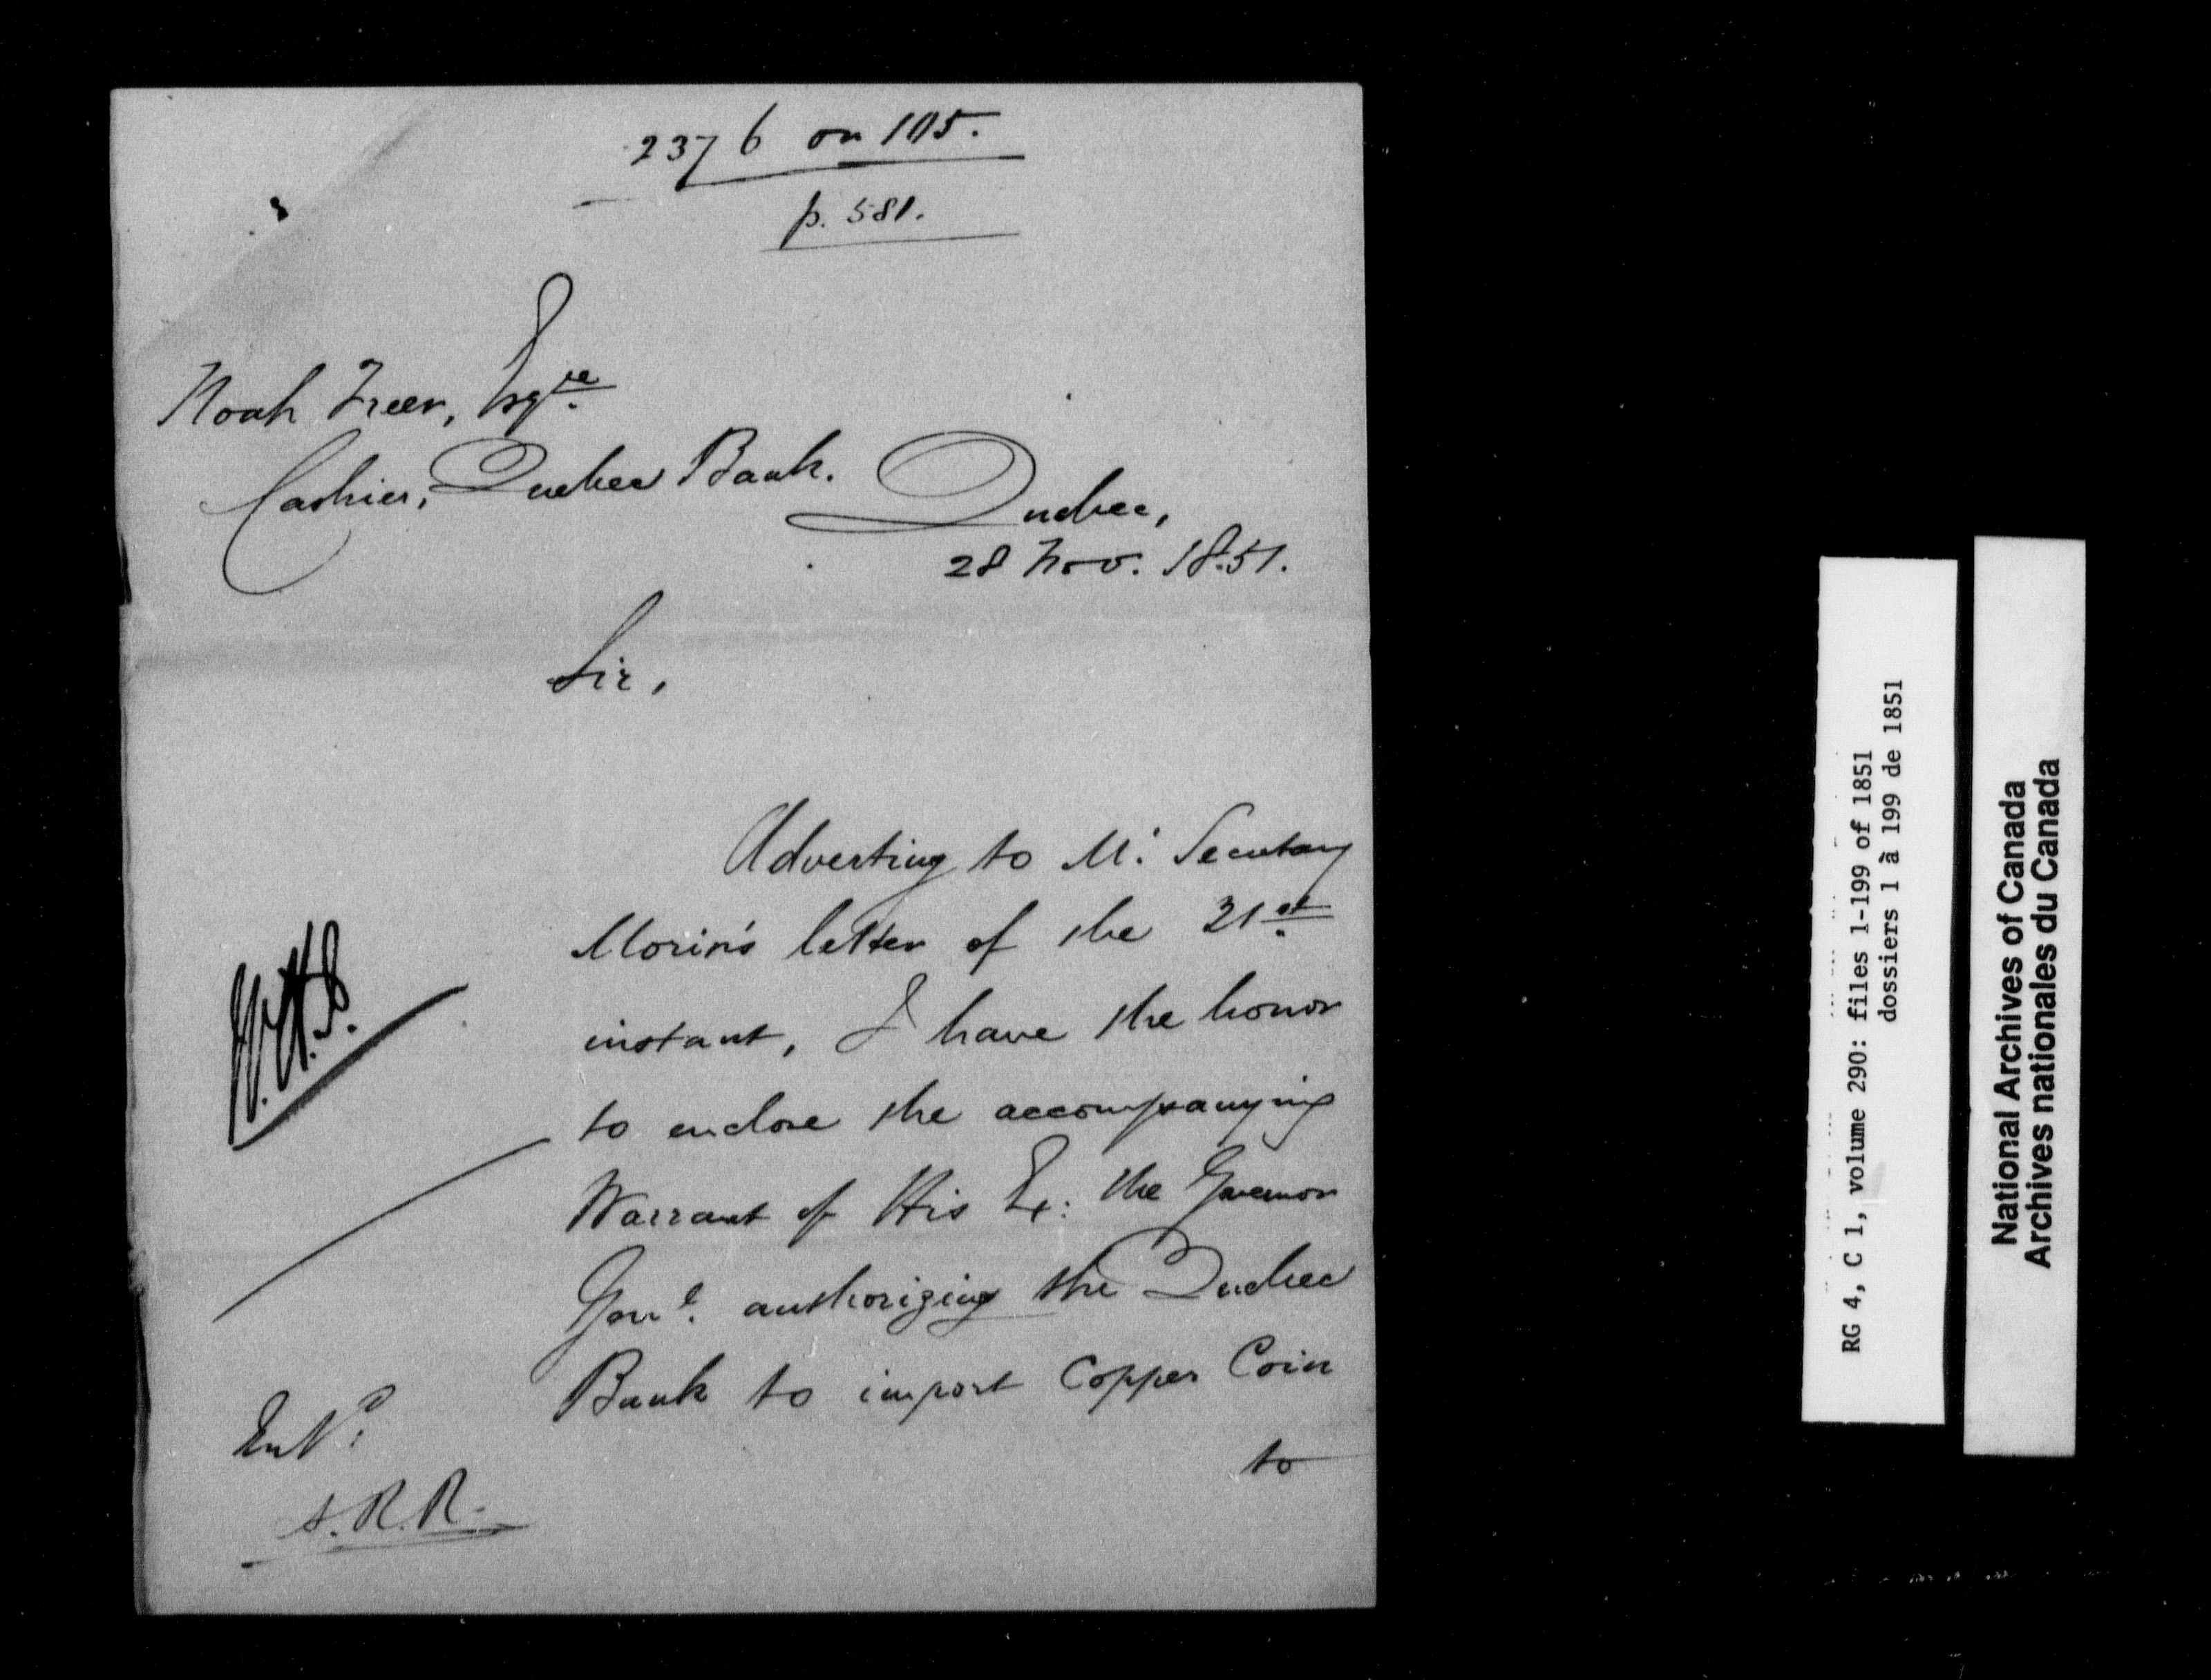 2376 on 105.
p. 581.
Noah Freer, Esqre.
Cashier, Quebec Bank.
Quebec,
28 Nov. 1851.
Sir,
Adverting to Mr. Secretary
Morin's letter of the 21st.
instant, I have the honor
to enclose the accompanying
Warrant of His Ex: the Governor
Genl. authorizing the Quebec
Bank to import Copper Coin
to
Entd:
RG 4, C 1, volume 290: files 1-199 of 1851
dossiers 1 à 199 de 1851
National Archives of Canada
Archives nationales du Canada